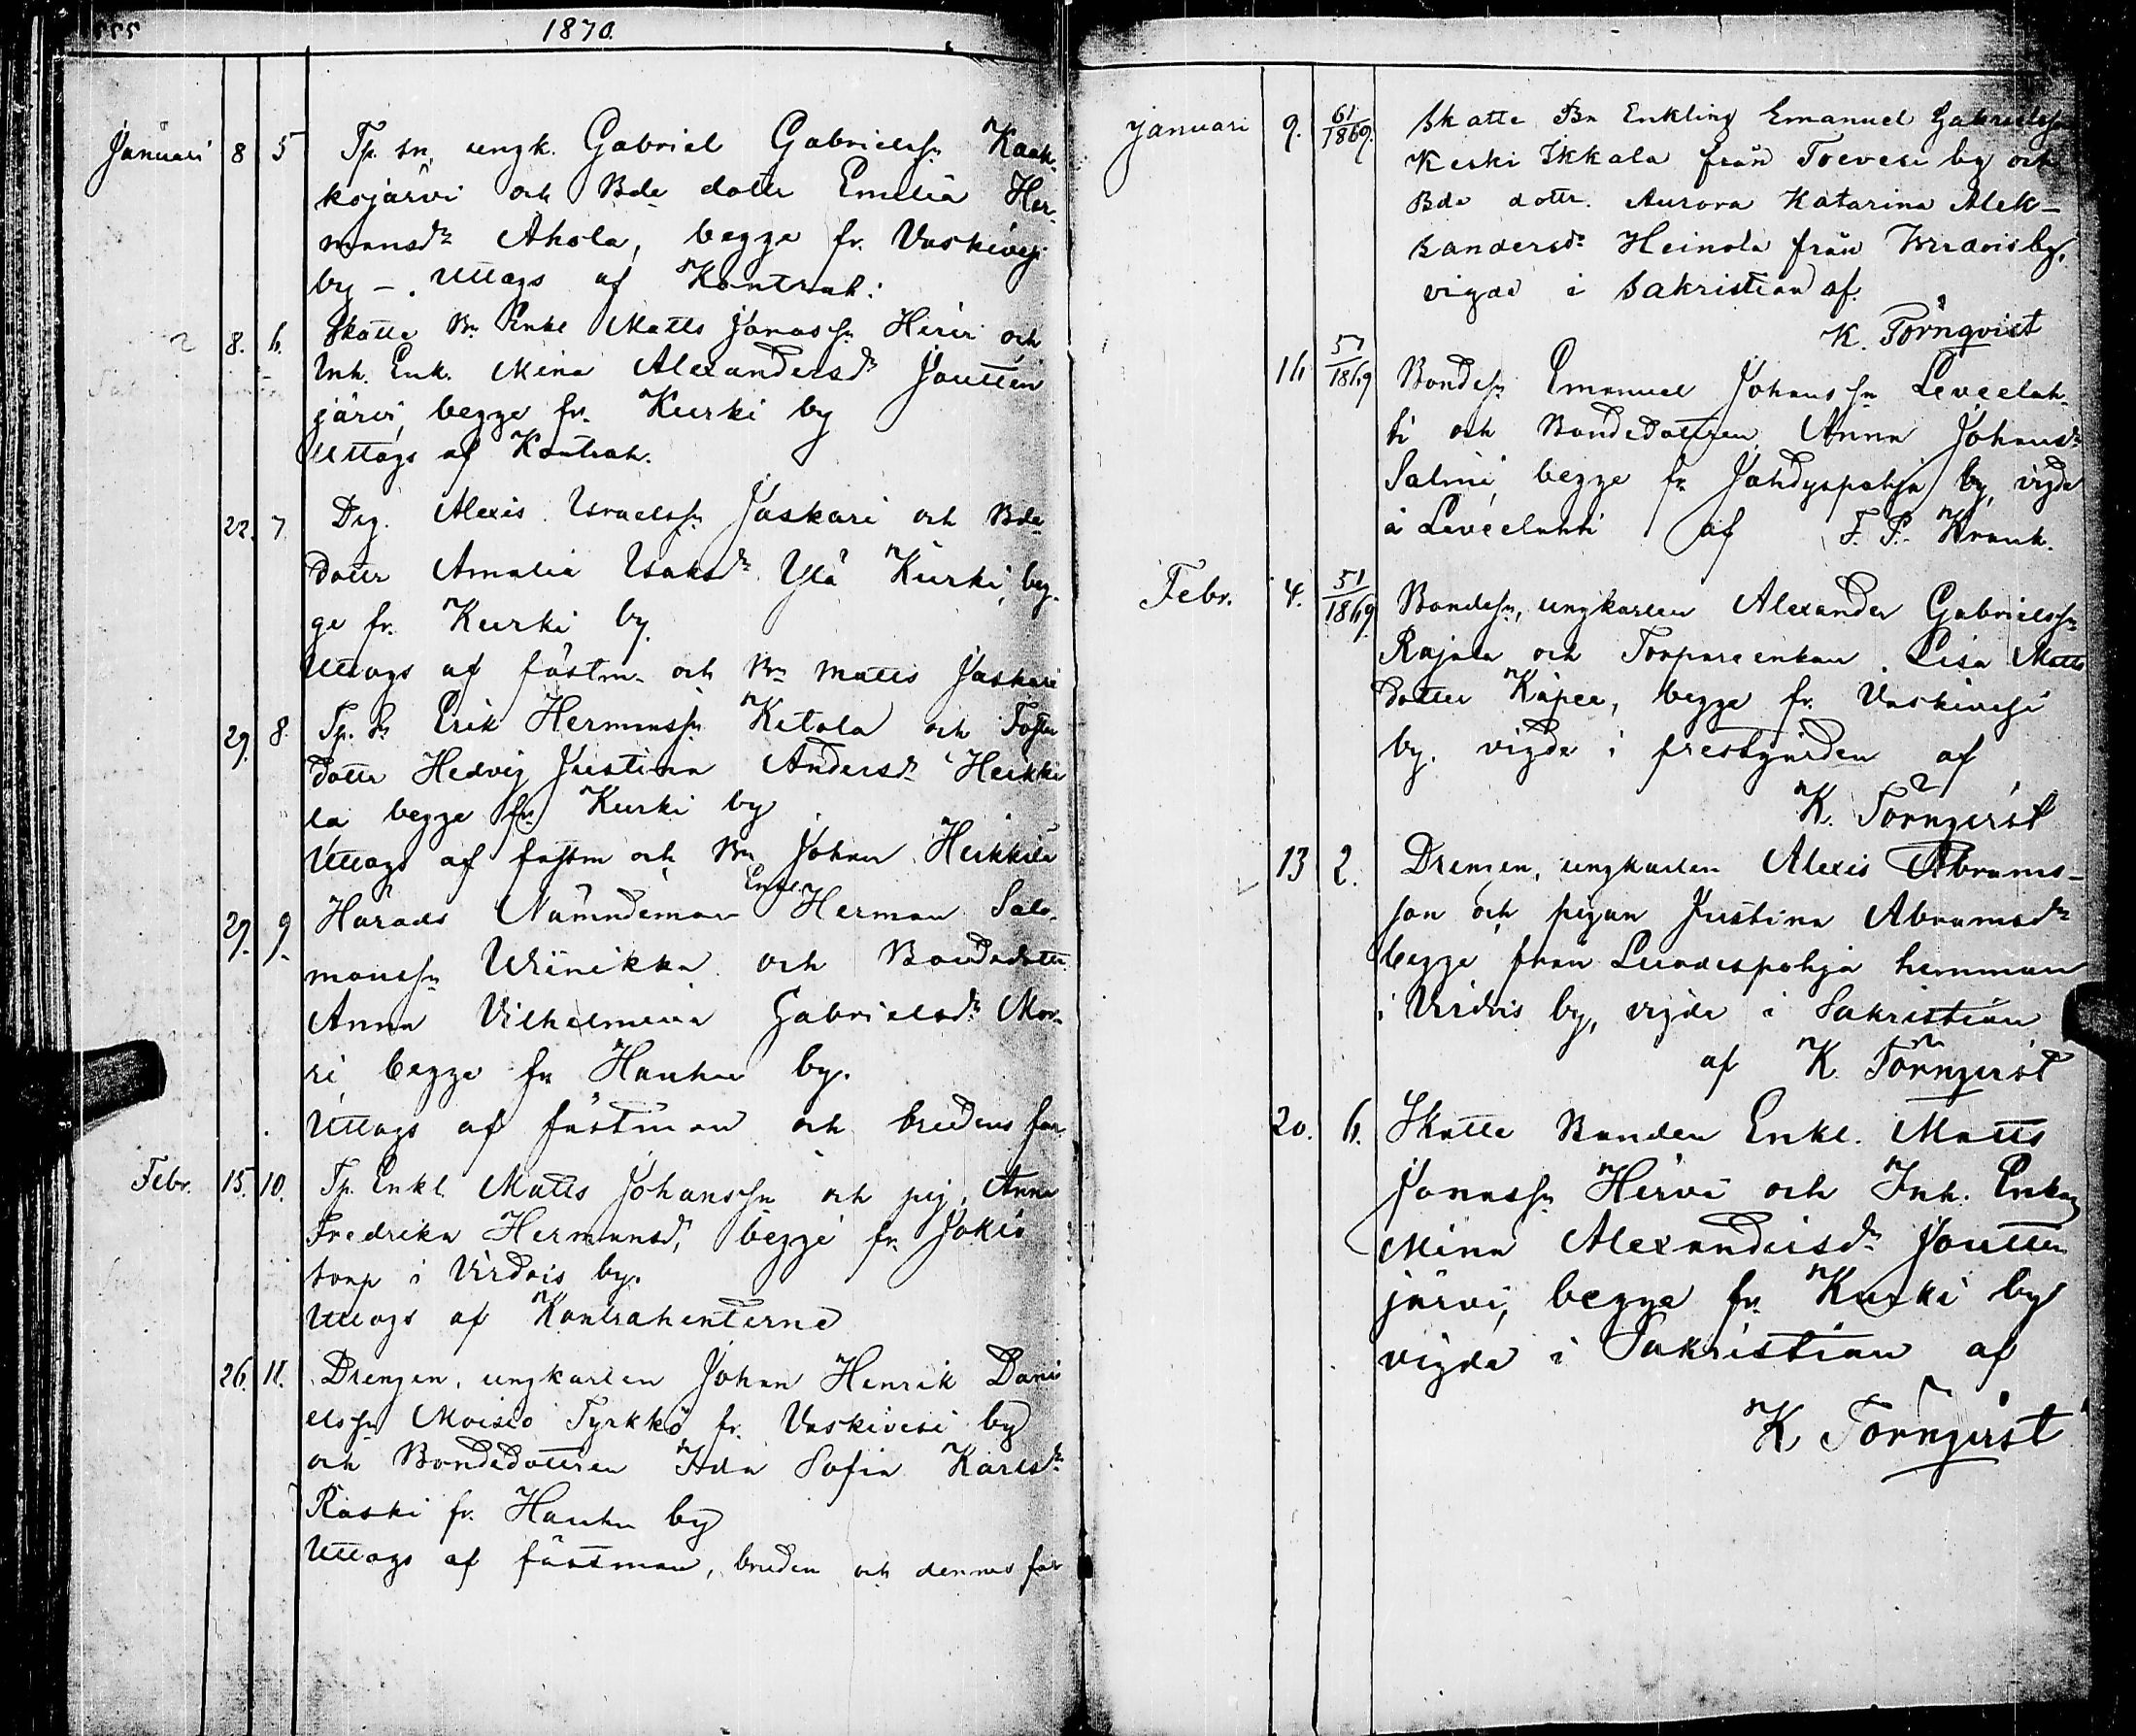 1870.
Januari 8 5 Tp. sn, ungk. Gabriel Gabrielssn Kaak-
kojärvi och Bde dottr Emelia Her-
mansdr Ahola, begge fr. Vaskivesi
by –. Uttogs af Kontrah:
8. 6. Skatte Bn Enkl Matts Jonassn Hirvi och
Inh. Enk. Mina Alexandersdr Joutten
järvi, begge fr. Kurki by
Uttogs af Kontrah.
22. 7 Drg. Alexis Israelssn Jaskari och Bde
dottr Amalia Isaksdr Ylä Kurki, beg-
ge fr. Kurki by.
Uttogs af fästm. och Bn Matts Jaskari
29. 8. Tp. Sn Erik Hermanssn Ketola och Foster
dottr Hedvig Justina Andersdr Heikki
lä begge fr. Kurki by
Uttogs af fästm och Bn Johan Heikkilä
29. 9. Härads Nämndeman Enkl Herman Salo-
monssn Uriinikka och Bondedottr
Anna Vilhelmina Gabrielsdr Mar-
ri begge fr Hauhu by.
Uttogs af fästman och brudens far.
Febr. 15. 10. Tp. Enkl. Matts Johanssn och pig. Anna
Fredrika Hermansdr, begge fr. Jokis
torp i Virdois by.
Uttogs af Kontrahenterne
26. 11. Drengen, ungkarlen Johan Henrik Dani
elssn Moisio Tyrkkö fr. Vaskivesi by
och Bondedottren Ida Sofia Karlsdr
Raski fr. Hauhu by
Uttogs af fästman, bruden och dennes far
Januari 9. 61/1869. Skatte Bn Enkling Emanuel Gabrielssn
Keski Ikkala från Toevesi by och
Bde dottr. Aurora Katarina Alek-
sandersdr Heinola från Virdois by,
vigde i Sakristian af.
K. Törnqvist
16 51/1869 Bondesn Emanuel Johanssn Leveelah-
ti och Bondedottren Anna Johansdr
Salmi, begge fr Jähdyspohja by, vigde
å Leveelahti af F. P. Krank.
Febr. 4. 51/1869. Bondesn, ungkarlen Alexander Gabrielssn
Rajala och Torpareenkan Lisa Matts
dotter Käpee, begge fr. Vaskivesi
by. vigde i prestgården af
K. Törnqvist
13 2. Drengen, ungkarlen Alexis Abrams-
son och pigan Justina Abramsdr
begge från Luodespohja hemman
i Virdois by, vigde i Sakristian
af K. Törnqvist
20. 6. Skatte Bonden Enkl. Matts
Jonassn Hirvi och Inh. Enkan
Mina Alexandersdr Joutten
järvi, begge fr Kurki by
vigde i Sakristian af
K Törnqvist